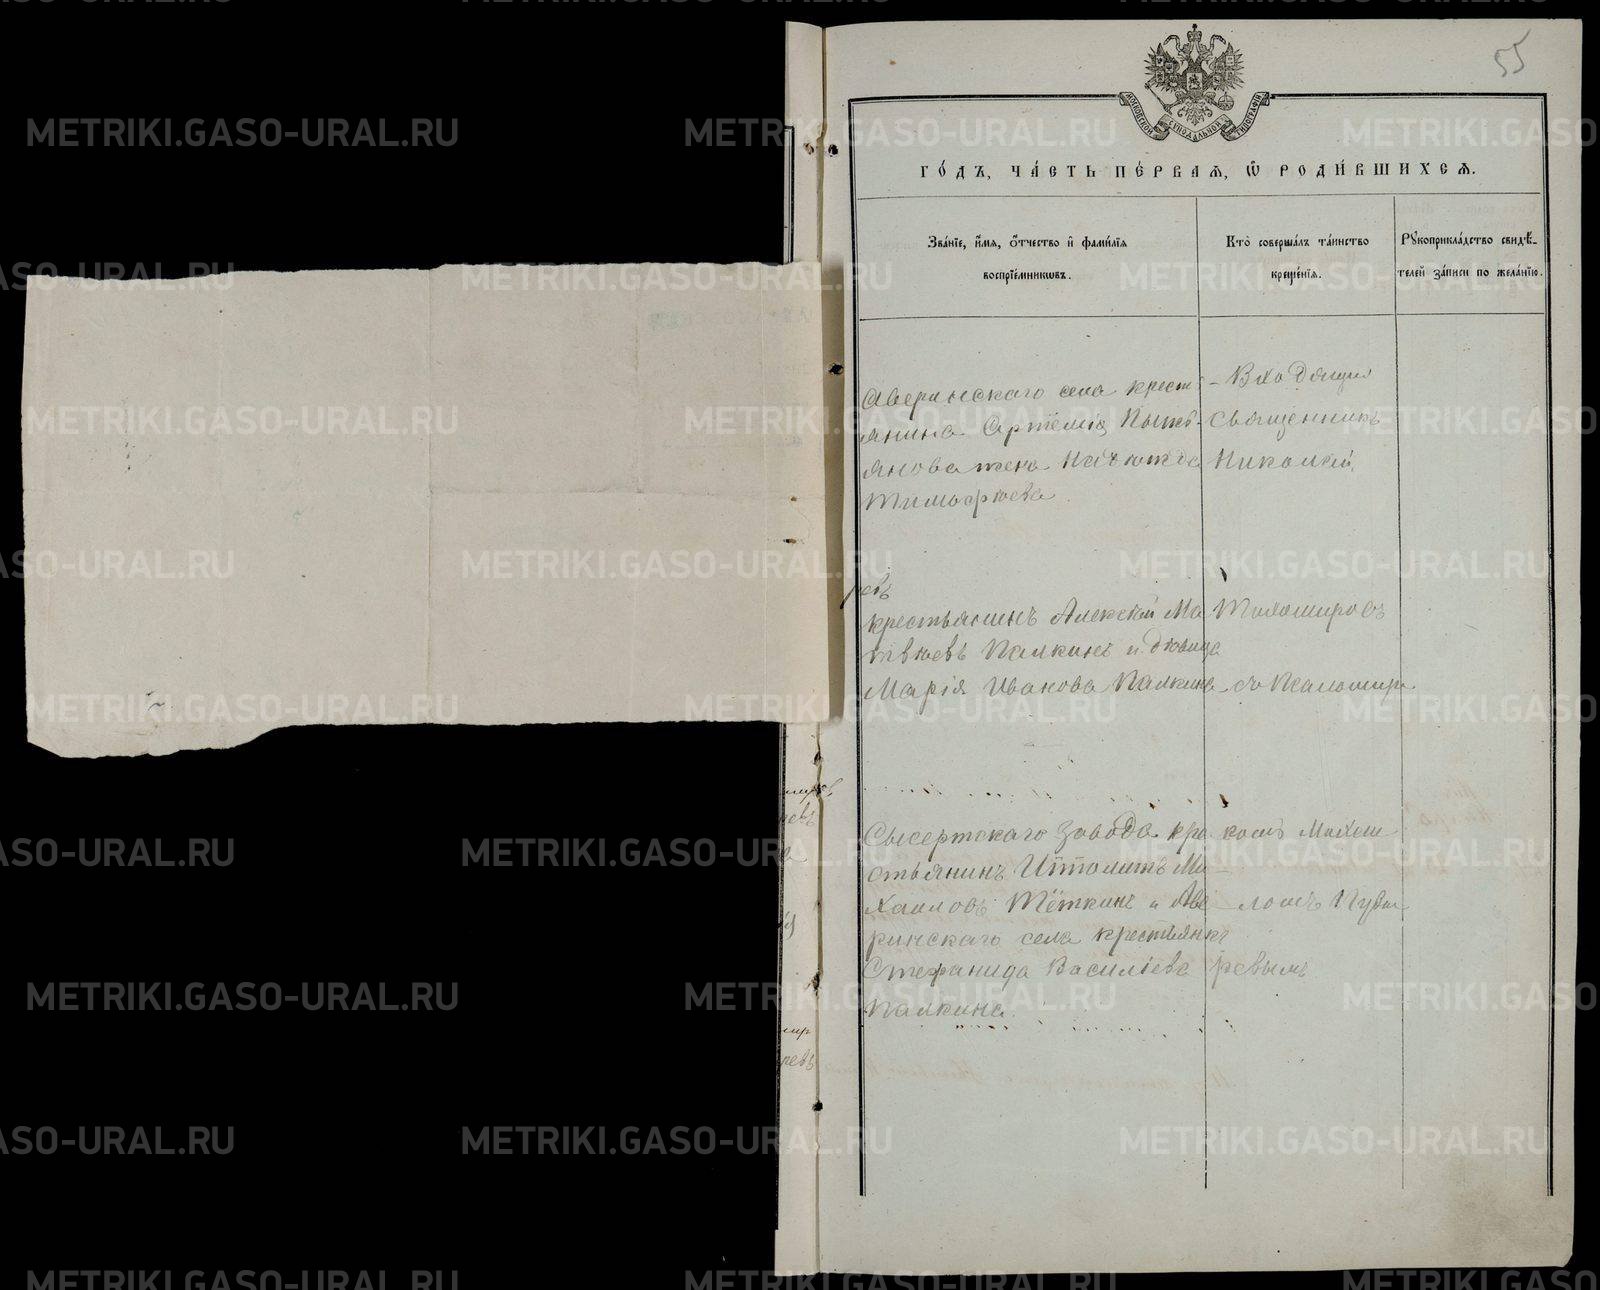 55
МОСКОВСКОЙ СѴНОДАЛЬНОЙ ТИПОГРАФІИ
ГО́ДЪ, ЧА́СТЬ ПЕ́РВАѦ, Ѡ҆ РОДИ́ВШИХСѦ.
Зва́нїе, и҆́мѧ, ѻ҆́тчество и҆ фами́лїѧ
воспрїе́мниковъ.
Кто̀ соверша́лъ та́инство
креще́нїѧ.
Рꙋкоприкла́дство свидѣ́-
телей за́писи по жела́нїю.
Аверинскаго села крестъ
янина Артемія
янова жена Надежда
Тимофеева
Входящія
Священникъ
Николай
ревъ
крестьянинъ Алексѣй Ма
твѣевъ Палкинъ и дѣвица
Марія Иванова Палкина
Тихомировъ
съ Псаломщи
Сысертскаго завода кре
стьянинъ Ипполитъ Ми
хаиловъ Тёткинъ и Аве
ринскаго села крестьянка
Стефанида Василіева
Палкина.
комъ Михаи
ломъ Пузы
ревымъ
METRIKI.GASO-URAL.RU